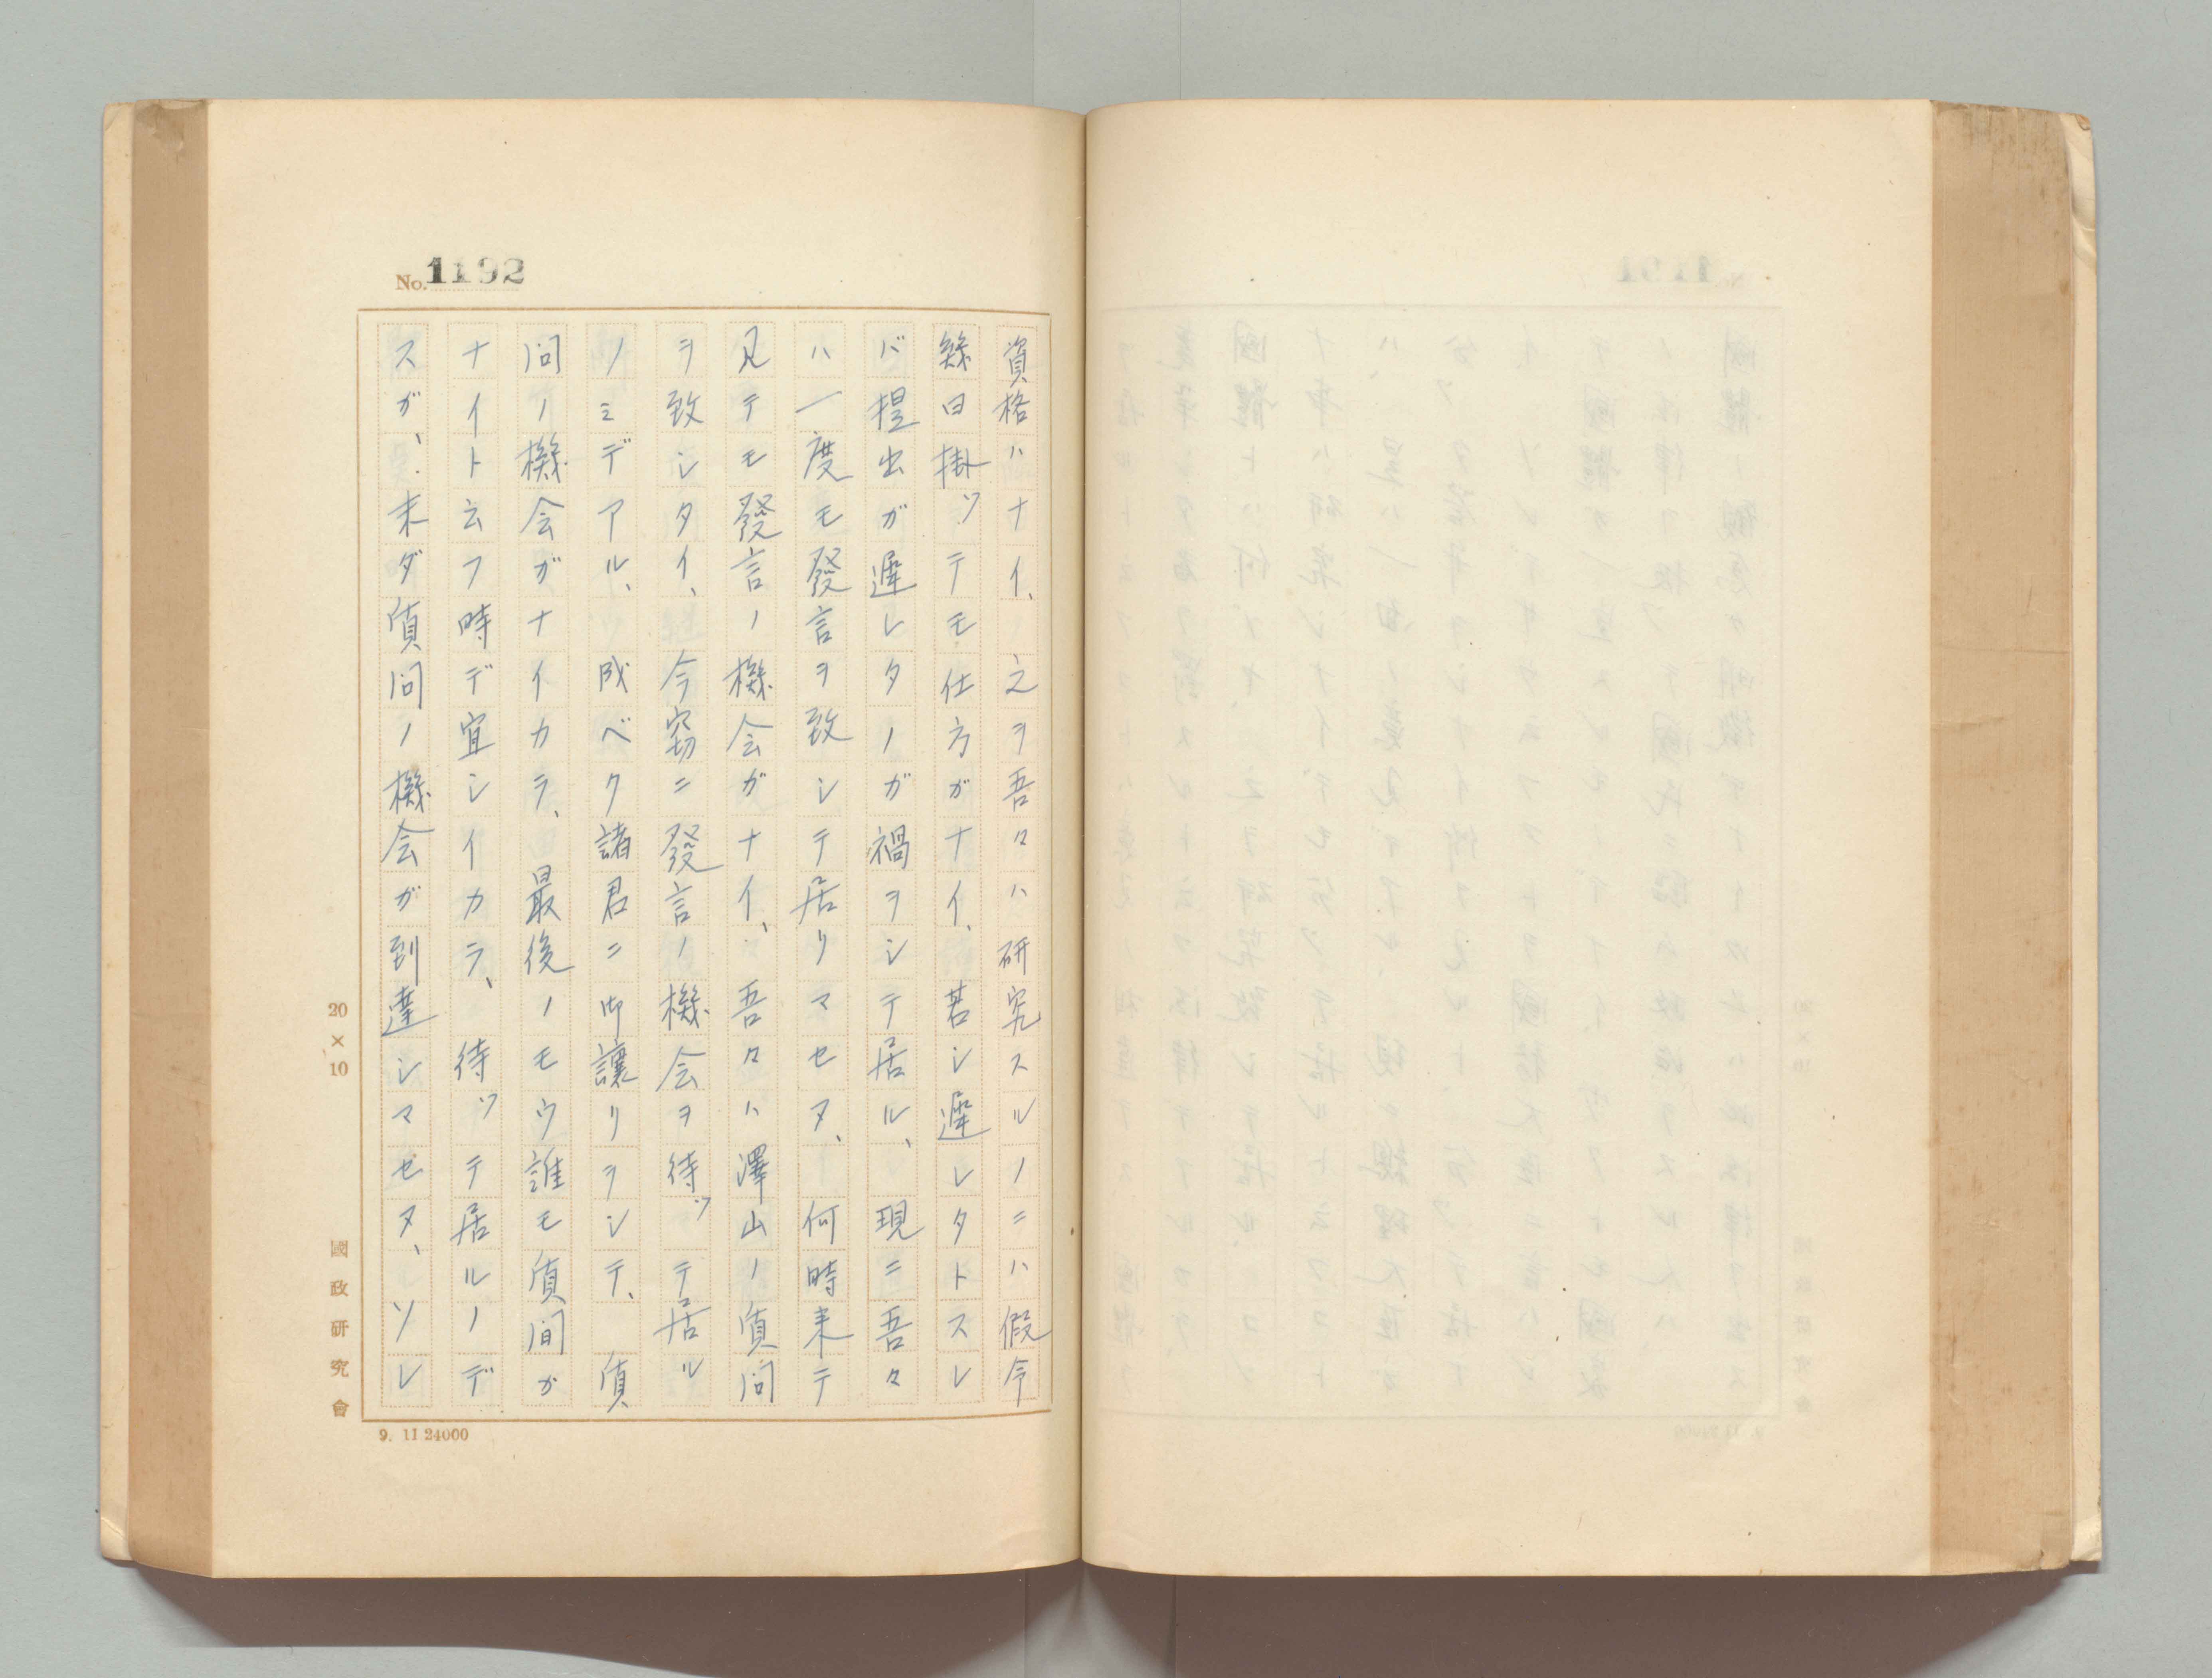 No. 1192
資格ハナイ、之ヲ吾々ハ研究スルノニハ假令
幾日掛ツテモ仕方ガナイ、若シ遲レタトスレ
バ提出ガ遲レタノガ禍ヲシテ居ル、現ニ吾々
ハ一度モ發言ヲ致シテ居リマセヌ、何時来テ
見テモ發言ノ機会ガナイ、吾々ハ澤山ノ質问
ヲ致シタイ、今窃ニ發言ノ機会ヲ待ツテ居ル
ノミデアル、成ベク諸君ニ御讓リヲシテ、質
问ノ機会ガナイカラ、最後ノモウ誰モ質間ガ
ナイト云フ時デ宜シイカラ、待ツテ居ルノデ
スガ、未ダ質问ノ機会ガ到達シマセヌ、ソレ
20×10
國政研究會
9. 11 24000